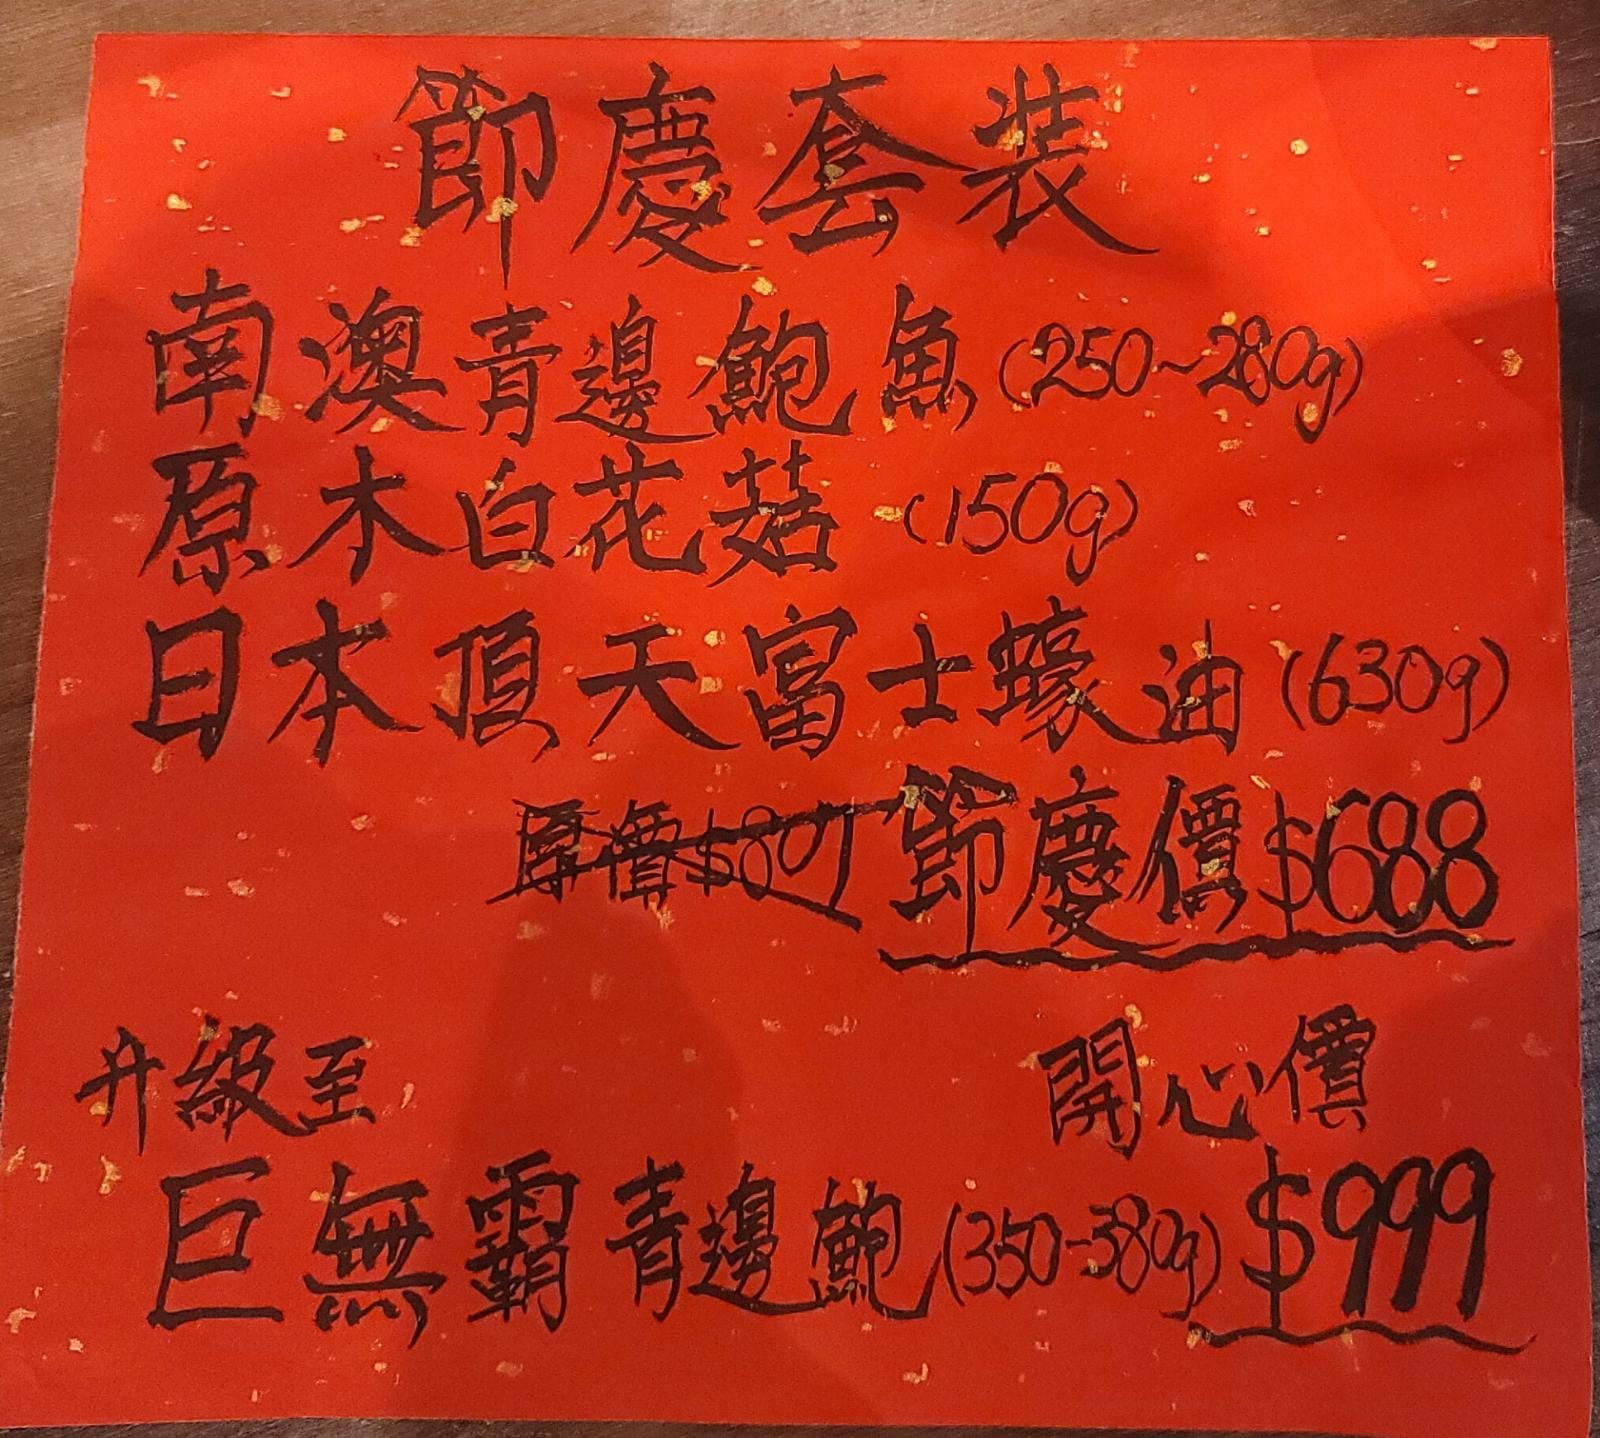 節慶套装
南澳青邊鮑魚(250~280g)
原木白花菇(150g)
日本頂天富士蠔油(630g)
原價$807 節慶價$688
升級至 開心價
巨無霸青邊鮑(350-380g) $999